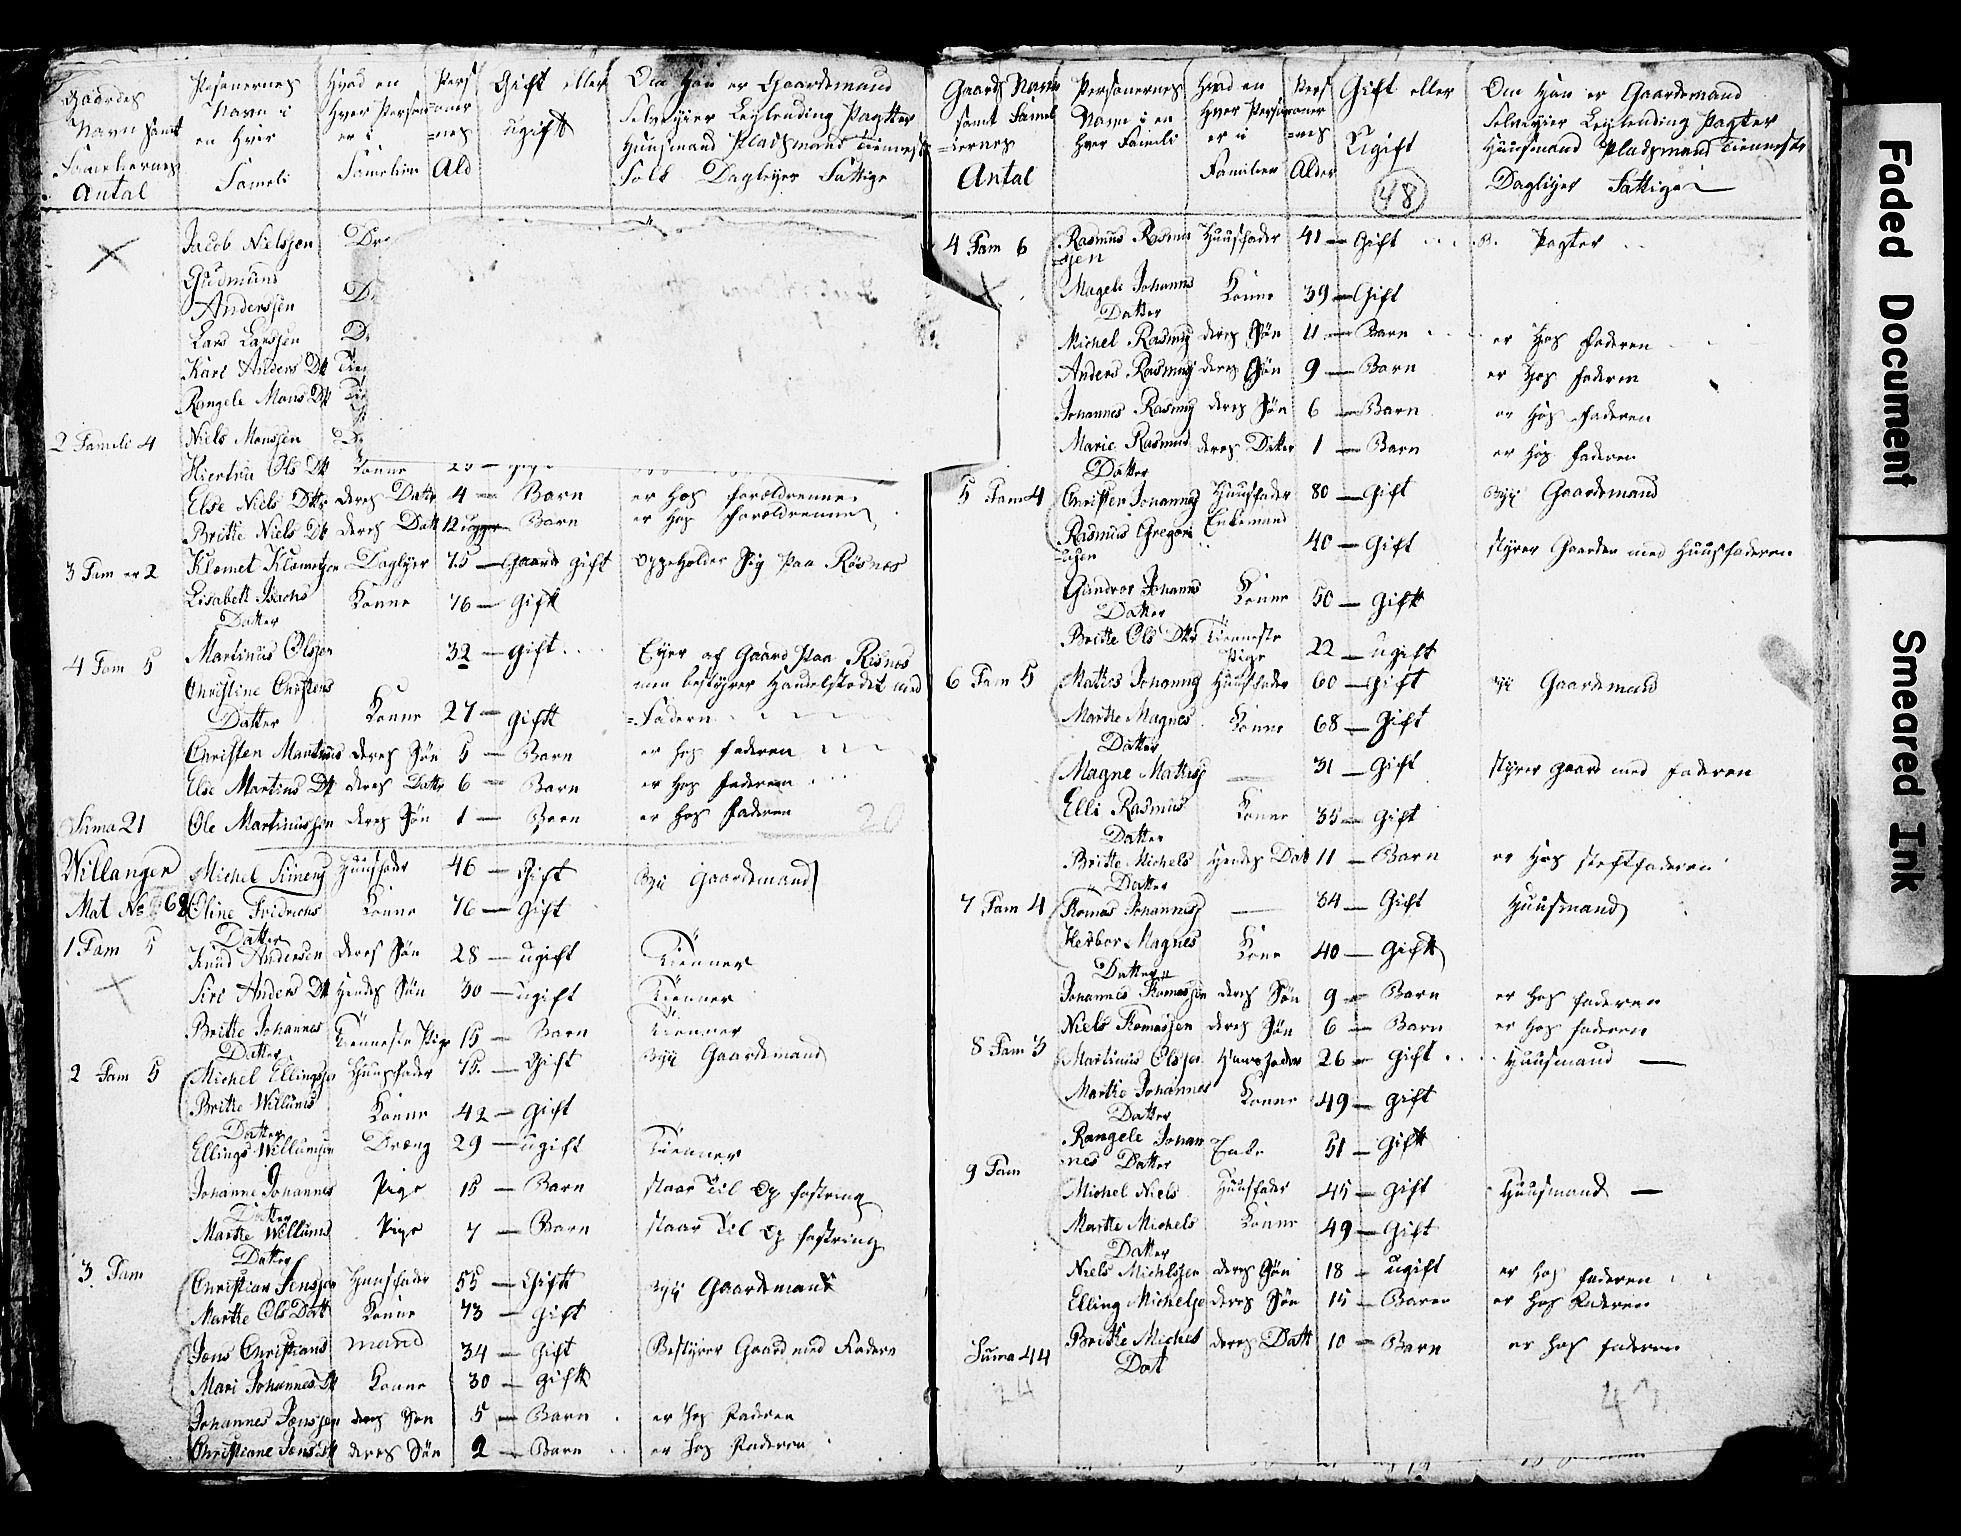 Gaardes Navn samt Familiernes Antal | Personernes Navn i en Hver Fameli | Hvad en Hver Person er i Familien | Personernes Ald | Gift eller ugift | Om Han er Gaardemand Selveyer Leylending Pagtter Huusmand Pladsmand Tienneste Folk Dagleyer Fattige
Jacob Nielssen Dre
Gudmund Anderssen D
Lars Larssen D
Kari Anders Dt Tien
Rangele Mons Dt
2 Fameli 4 Niels Monssen
Ols Dt Konne
Else Niels Dttr deres Dattr 4 — Barn er Hos forældrenne
Britte Niels Dt deres Datt 12 uger Barn er Hos forældrenne
3 Fam er 2 Klamet Klametsen Dagleyer 75 — Gaard Gift oppeholder Sig paa Risnes
Lisabett Isachs Datter Konne 76 — Gift
4 Fam 5 Martinus Olssen 32 — Gift Eyer af Gaard paa Risnes
Christine Christens Datter Konne 27 — Gift men bestyrer Handelstedet med Fadern
Christen Martinus deres Søn 5 — Barn er hos faderen
Else Martins Dt deres Dattr 6 — Barn er Hos faderen
Suma 21 Ole Martinussen deres Søn 1 — Barn er Hos faderen
20
Willanger Michel Simens Huusfader 46 — Gift Gaardemand
Mat No 68 Eline Fridrichs Datter Konne 76 — Gift
1 Fam 5 Knud Andersen deres Søn 28 — ugift Tienner
Siri Anders Dt Hendes Søn 30 — ugift Tienner
Britte Johannes Datter Tienneste Pige 15 — Barn Tienner
2 Fam 5 Michel Ellingssen Huusfader 75 — Gift Gaardemand
Britte Willums Datter Konne 42 — Gift
Ellings Willumsen Dreng 29 — ugift Tienner
Johanne Johannes Datter Pige 15 — Barn staar til Op fostring
Marthe Willums Datter Pige 7 — Barn staar til Op fostring
3 Fam Christian Jenssen Huusfader 55 — Gift Gaardemand
Marthe Ols Datt Konne 73 — Gift
Jens Christians mand 34 — Gift Bestyrer Gaard med Fadern
Mari Johannes Dt Konne 30 — Gift
Johannes Jenssen deres Søn 5 — Barn er Hos Faderen
Christiane Jens Dt deres Søn 2 — Barn er Hos Faderen
Gaards Navn samt Familiernes Antal | Personernes Navn i en Hver Fameli | Hvad en Hver Person er i Familien | Personernes Alder | Gift eller Ugift | Om Han er Gaardemand Selveyer Leylending Pagter Huusmand Pladsmand Tienneste Dagleyer Fattige
48
4 Fam 6 Rasmus Rasmussen Huusfader 41 — Gift Pagter
Magele Johannes Datter Konne 39 — Gift
Michel Rasmus deres Søn 11 — Barn er Hos Faderen
Anders Rasmus deres Søn 9 — Barn er Hos faderen
Johannes Rasmus deres Søn 6 — Barn er Hos Faderen
Marie Rasmus Datter deres Datter 1 — Barn er Hos faderen
5 Fam 4 Christen Johannes Huusfader Enkemand 80 — Gift Gaardemand
Rasmus Gregorissen 40 — Gift styrer Gaarden med Huusfaderen
Gundvor Johannes Datter Konne 50 — Gift
Britte Ols Dttr Tienneste Pige 22 — ugift
6 Fam 5 Matties Johannes Huusfader 60 — Gift Gaardemand
Marthe Magnes Datter Konne 68 — Gift
Magne Matties — 31 — Gift styrer gaard med Faderen
Elli Rasmus Datter Konne 35 — Gift
Britte Michels Datter Hendes Dat 11 — Barn er Hos steffaderen
7 Fam 4 Tomas Johannes — 34 — Gift Huusmand
Herbor Magnes Datter Kone 40 — Gift
Johannes Tomassen deres Søn 9 — Barn er Hos Faderen
Niels Tomassen deres Søn 6 — Barn er Hos faderen
8 Fam 3 Martinus Olssen Huusfader 26 — Gift Huusmand —
Marthe Johannes Datter Konne 49 — Gift
Rangele Johannes Datter Enke 51 — Gift
9 Fam Michel Niels Huusfader 45 — Gift Huusmand —
Marthe Michels Datter Konne 49 — Gift
Niels Michlssen deres Søn 18 — ugift er Hos Faderen
Elling Michelse deres Søn 15 — Baren er Hos Faderen
Suma 44 Britte Michel Dat deres Datt 10 — Barn er Hos faderen
24
Faded Document
Smeared Ink